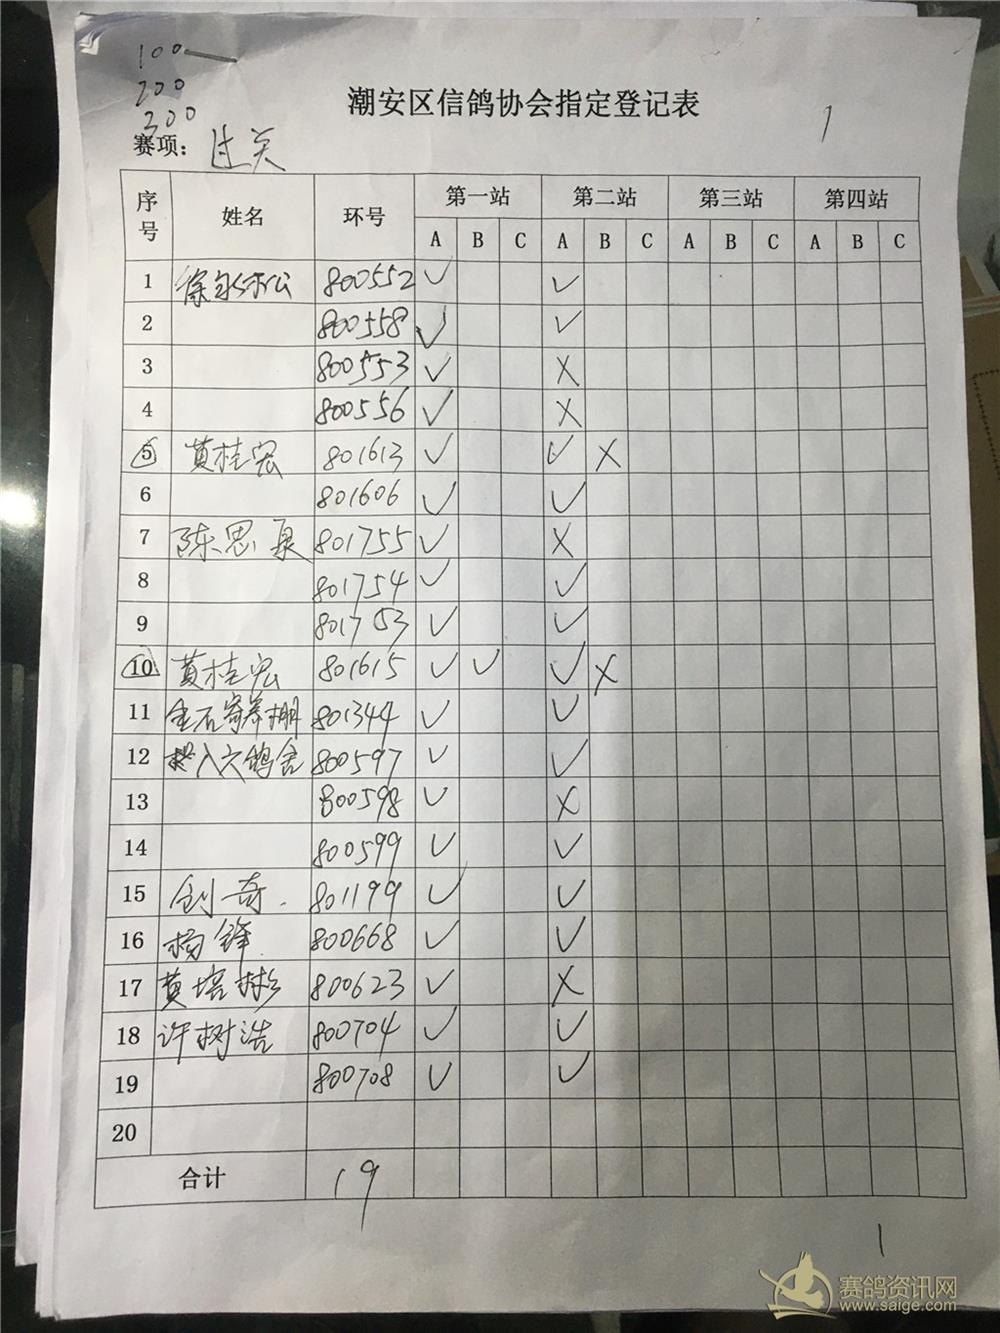 100
200
300
潮安区信鸽协会指定登记表
1
赛项: 过关
序号 姓名 环号 第一站 第二站 第三站 第四站
A B C A B C A B C A B C
1 800552 ✓ ✓
2 800558 ✓ ✓
3 800553 ✓ ×
4 800556 ✓ ×
5 黄桂宏 801613 ✓ ✓ ×
6 801606 ✓ ✓
7 陈思泉 801755 ✓ ×
8 801754 ✓ ✓
9 801753 ✓ ✓
10 黄桂宏 801615 ✓ ✓ ✓ ×
11 金石寄养棚 801344 ✓ ✓
12 八六鸽舍 800597 ✓ ✓
13 800598 ✓ ×
14 800599 ✓ ✓
15 创奇 801199 ✓ ✓
16 杨锋 800668 ✓ ✓
17 黄培彬 800623 ✓ ×
18 许树浩 800704 ✓ ✓
19 800708 ✓ ✓
20
合计 19
1
赛鸽资讯网
www.saige.com